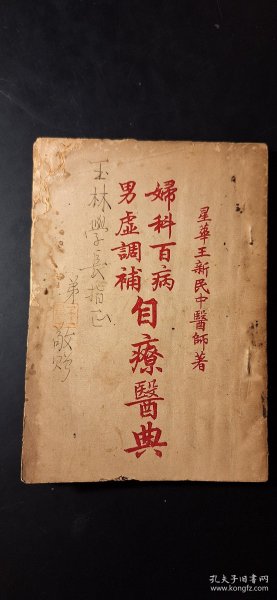 星華王新民中醫師著
婦科百病
男虛調補
自療醫典
玉林學長指正
弟
敬贈
孔夫子旧书网